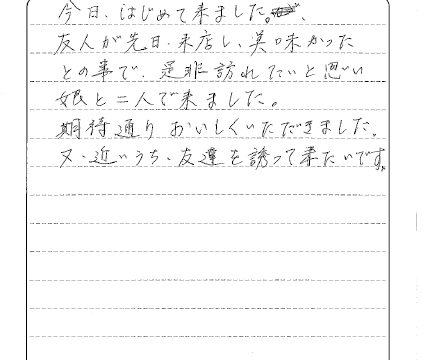 今日、はじめて来ました。
友人が先日、来店し、美味かった
との事で、是非訪れたいと思い
娘と二人で来ました。
期待通りおいしくいただきました。
又、近いうち、友達を誘って来たいです。